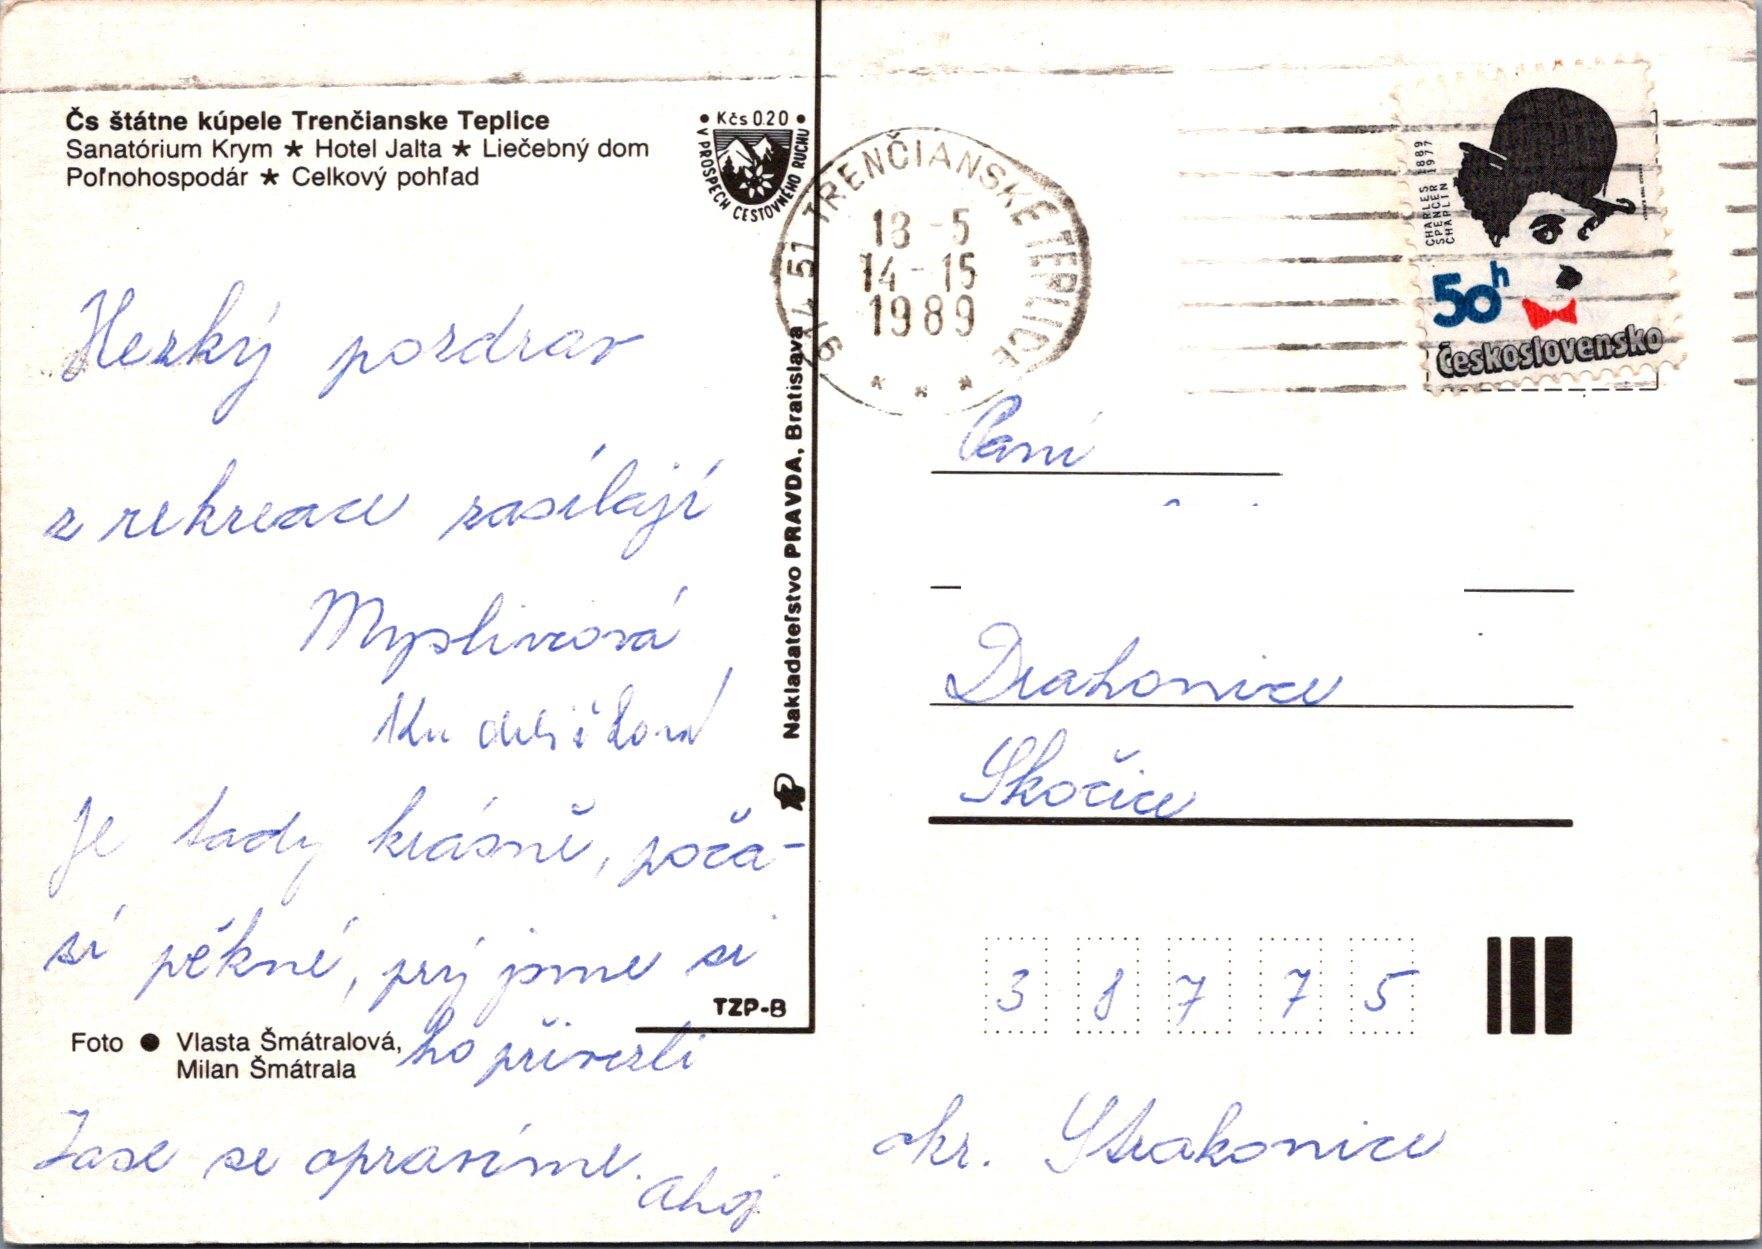 Čs štátne kúpele Trenčianske Teplice
Sanatórium Krym ★ Hotel Jalta ★ Liečebný dom
Poľnohospodár ★ Celkový pohľad
• Kčs 0.20 •
V PROSPECH CESTOVNÉHO RUCHU
914 51 TRENČIANSKE TEPLICE
13 -5
14 - 15
1989
* * *
CHARLES 1889
SPENCER 1977
CHAPLIN
50h
Československo
Hezký pozdrav
z rekreace zasílají
Myslivcová
Je tady krásně, poča-
sí pěkné, prý jsme si
ho přivezli
Zase se opravíme.
Ahoj
Nakladateľstvo PRAVDA, Bratislava
TZP-B
Foto ● Vlasta Šmátralová,
Milan Šmátrala
Paní
Drahonice
Skočice
3 8 7 7 5
okr. Strakonice